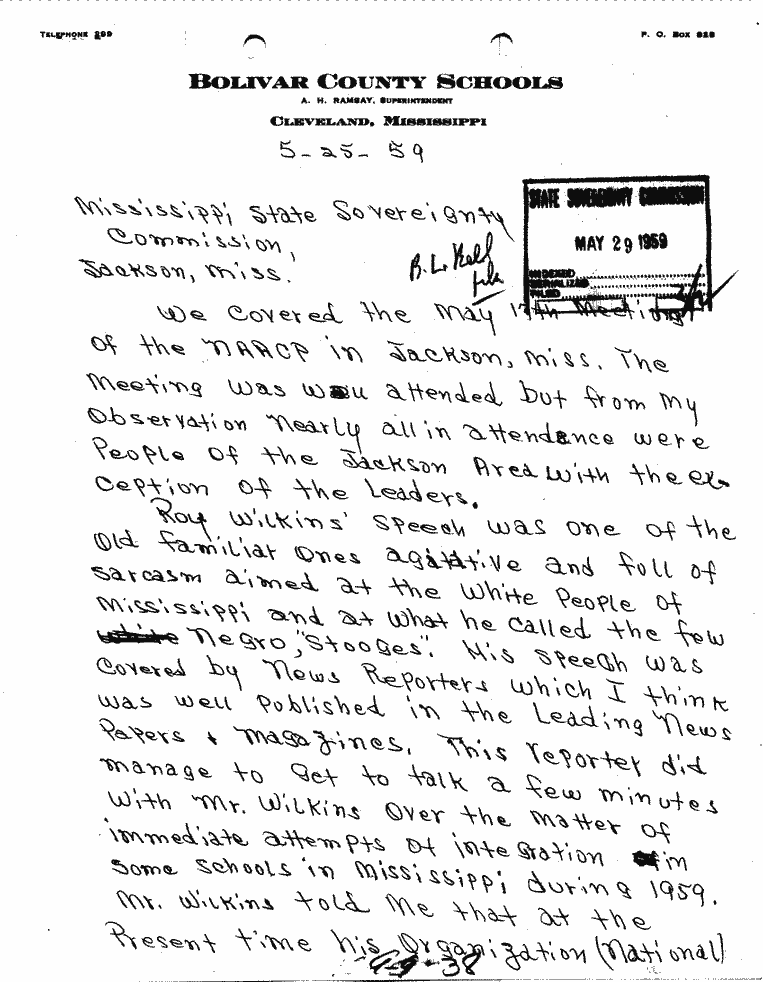 TELEPHONE 299
P. O. BOX 828
BOLIVAR COUNTY SCHOOLS
A. H. RAMSAY, SUPERINTENDENT
CLEVELAND, MISSISSIPPI
5-25-59
STATE SOVEREIGNTY COMMISSION
MAY 29 1959
INDEXED
SERIALIZED
FILED
Mississippi State Sovereignty
Commission,
Jackson, Miss.
We covered the May 17th Meeting
of the NAACP in Jackson, Miss. The
Meeting was well attended but from my
Observation nearly all in attendance were
People of the Jackson Area with the ex-
ception of the Leaders.
Roy Wilkins' speech was one of the
Old familiar Ones agitative and full of
sarcasm aimed at the White People of
Mississippi and at what he called the few
white Negro, "Stooges". His speech was
covered by News Reporters which I think
was well published in the Leading News
Papers + magazines. This reporter did
manage to get to talk a few minutes
With Mr. Wilkins Over the matter of
immediate attempts of integration in
some schools in Mississippi during 1959.
Mr. Wilkins told Me that at the
Present time his Organization (National)
9-9-38